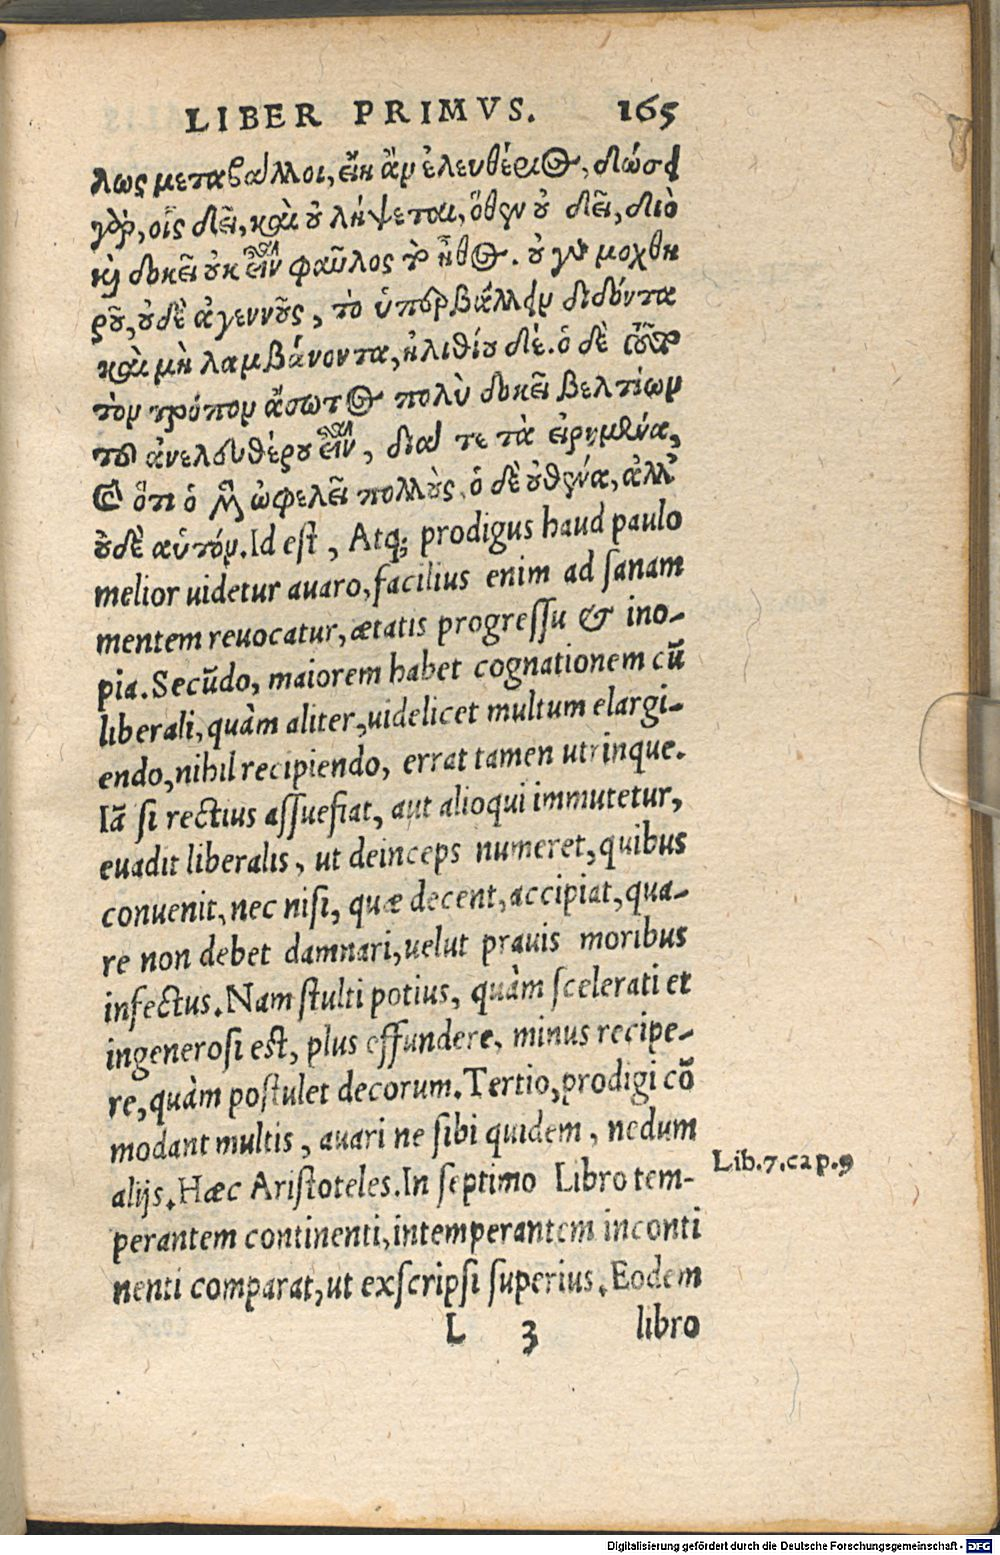 LIBER PRIMVS. 165
λως μεταβάλλοι, εἴη ἂν ἐλευθέριος, δώσει
γὰρ, οἷς δεῖ, καὶ οὐ λήψεται, ὅθεν οὐ δεῖ, διὸ
καὶ δοκεῖ οὐκ εἶναι φαῦλος τὸ ἦθος. οὐ γὰρ μοχθη
ροῦ, οὐδὲ ἀγεννοῦς, τὸ ὑπερβάλλειν διδόντα
καὶ μὴ λαμβάνοντα, ἠλιθίου δέ. ὁ δὲ τοῦτον
τὸν τρόπον ἄσωτος πολὺ δοκεῖ βελτίων
τοῦ ἀνελευθέρου εἶναι, διά τε τὰ εἰρημένα,
καὶ ὅτι ὁ μὲν ὠφελεῖ πολλοὺς, ὁ δὲ οὐθένα, ἀλλ'
οὐδὲ αὑτόν. Id est, Atq; prodigus haud paulo
melior uidetur auaro, facilius enim ad sanam
mentem reuocatur, ætatis progressu & ino-
pia. Secũdo, maiorem habet cognationem cũ
liberali, quàm aliter, uidelicet multum elargi-
endo, nihil recipiendo, errat tamen utrinque.
Iã si rectius assuefiat, aut alioqui immutetur,
euadit liberalis, ut deinceps numeret, quibus
conuenit, nec nisi, quæ decent, accipiat, qua-
re non debet damnari, uelut prauis moribus
infectus. Nam stulti potius, quàm scelerati et
ingenerosi est, plus effundere, minus recipe-
re, quàm postulet decorum. Tertio, prodigi cõ
modant multis, auari ne sibi quidem, nedum
alijs. Hæc Aristoteles. In septimo Libro tem-
Lib. 7. cap. 9
perantem continenti, intemperantem inconti
nenti comparat, ut exscripsi superius. Eodem
L 3 libro
Digitalisierung gefördert durch die Deutsche Forschungsgemeinschaft - DFG